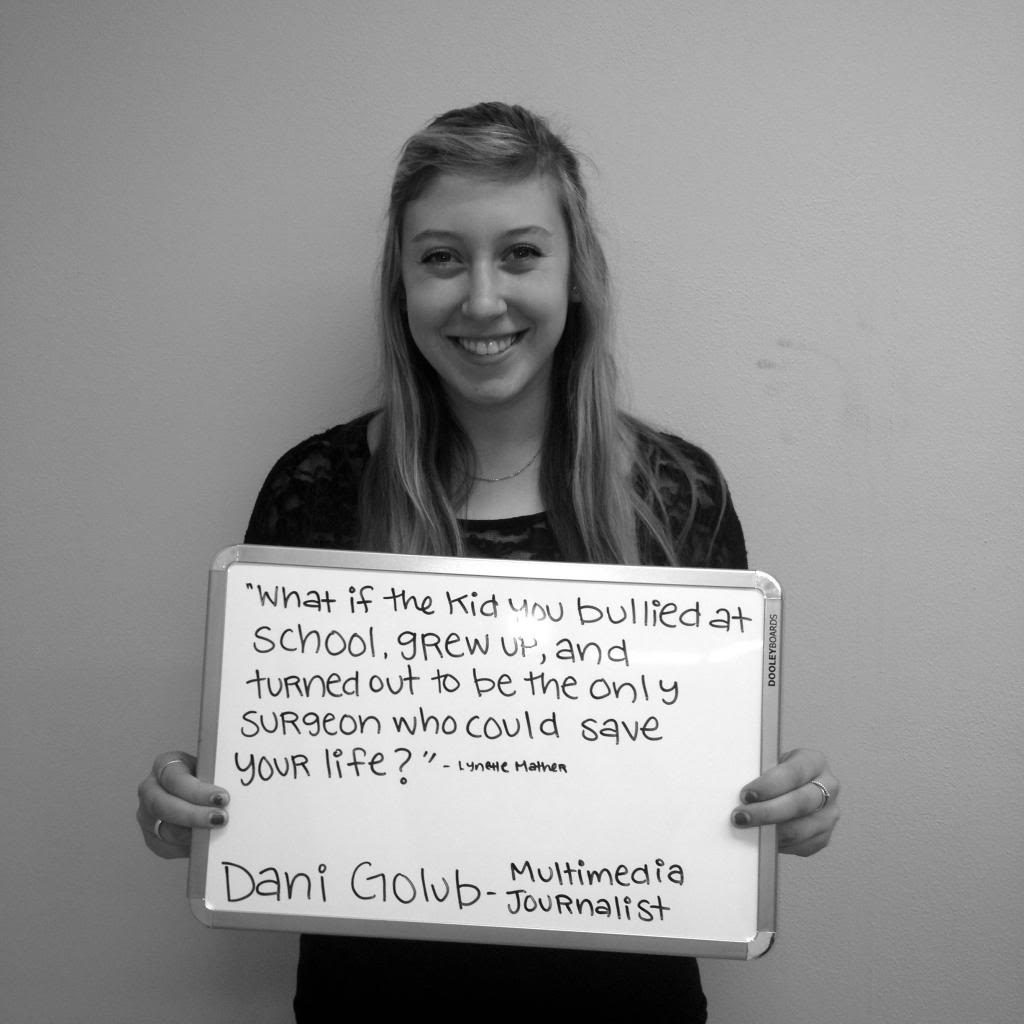 "What if the kid you bullied at
school, grew up, and
turned out to be the only
surgeon who could save
your life?" - Lynette Mather
Dani Golub - Multimedia
Journalist
DOOLEYBOARDS